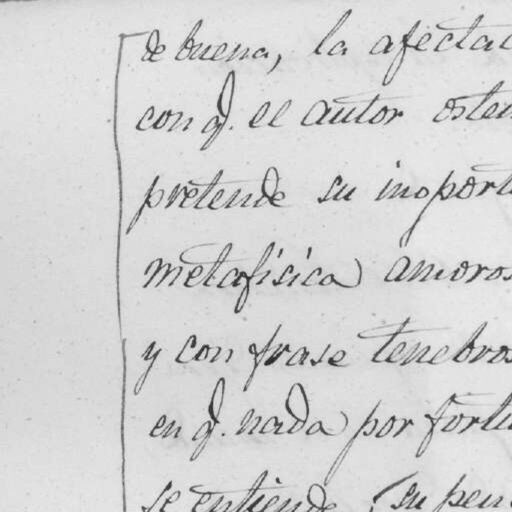 de buena, la afectac
con q. el autor osten
pretende su inoport
metafisica amoros
y con frase tenebros
en q. nada por fortu
se entiende, su pen